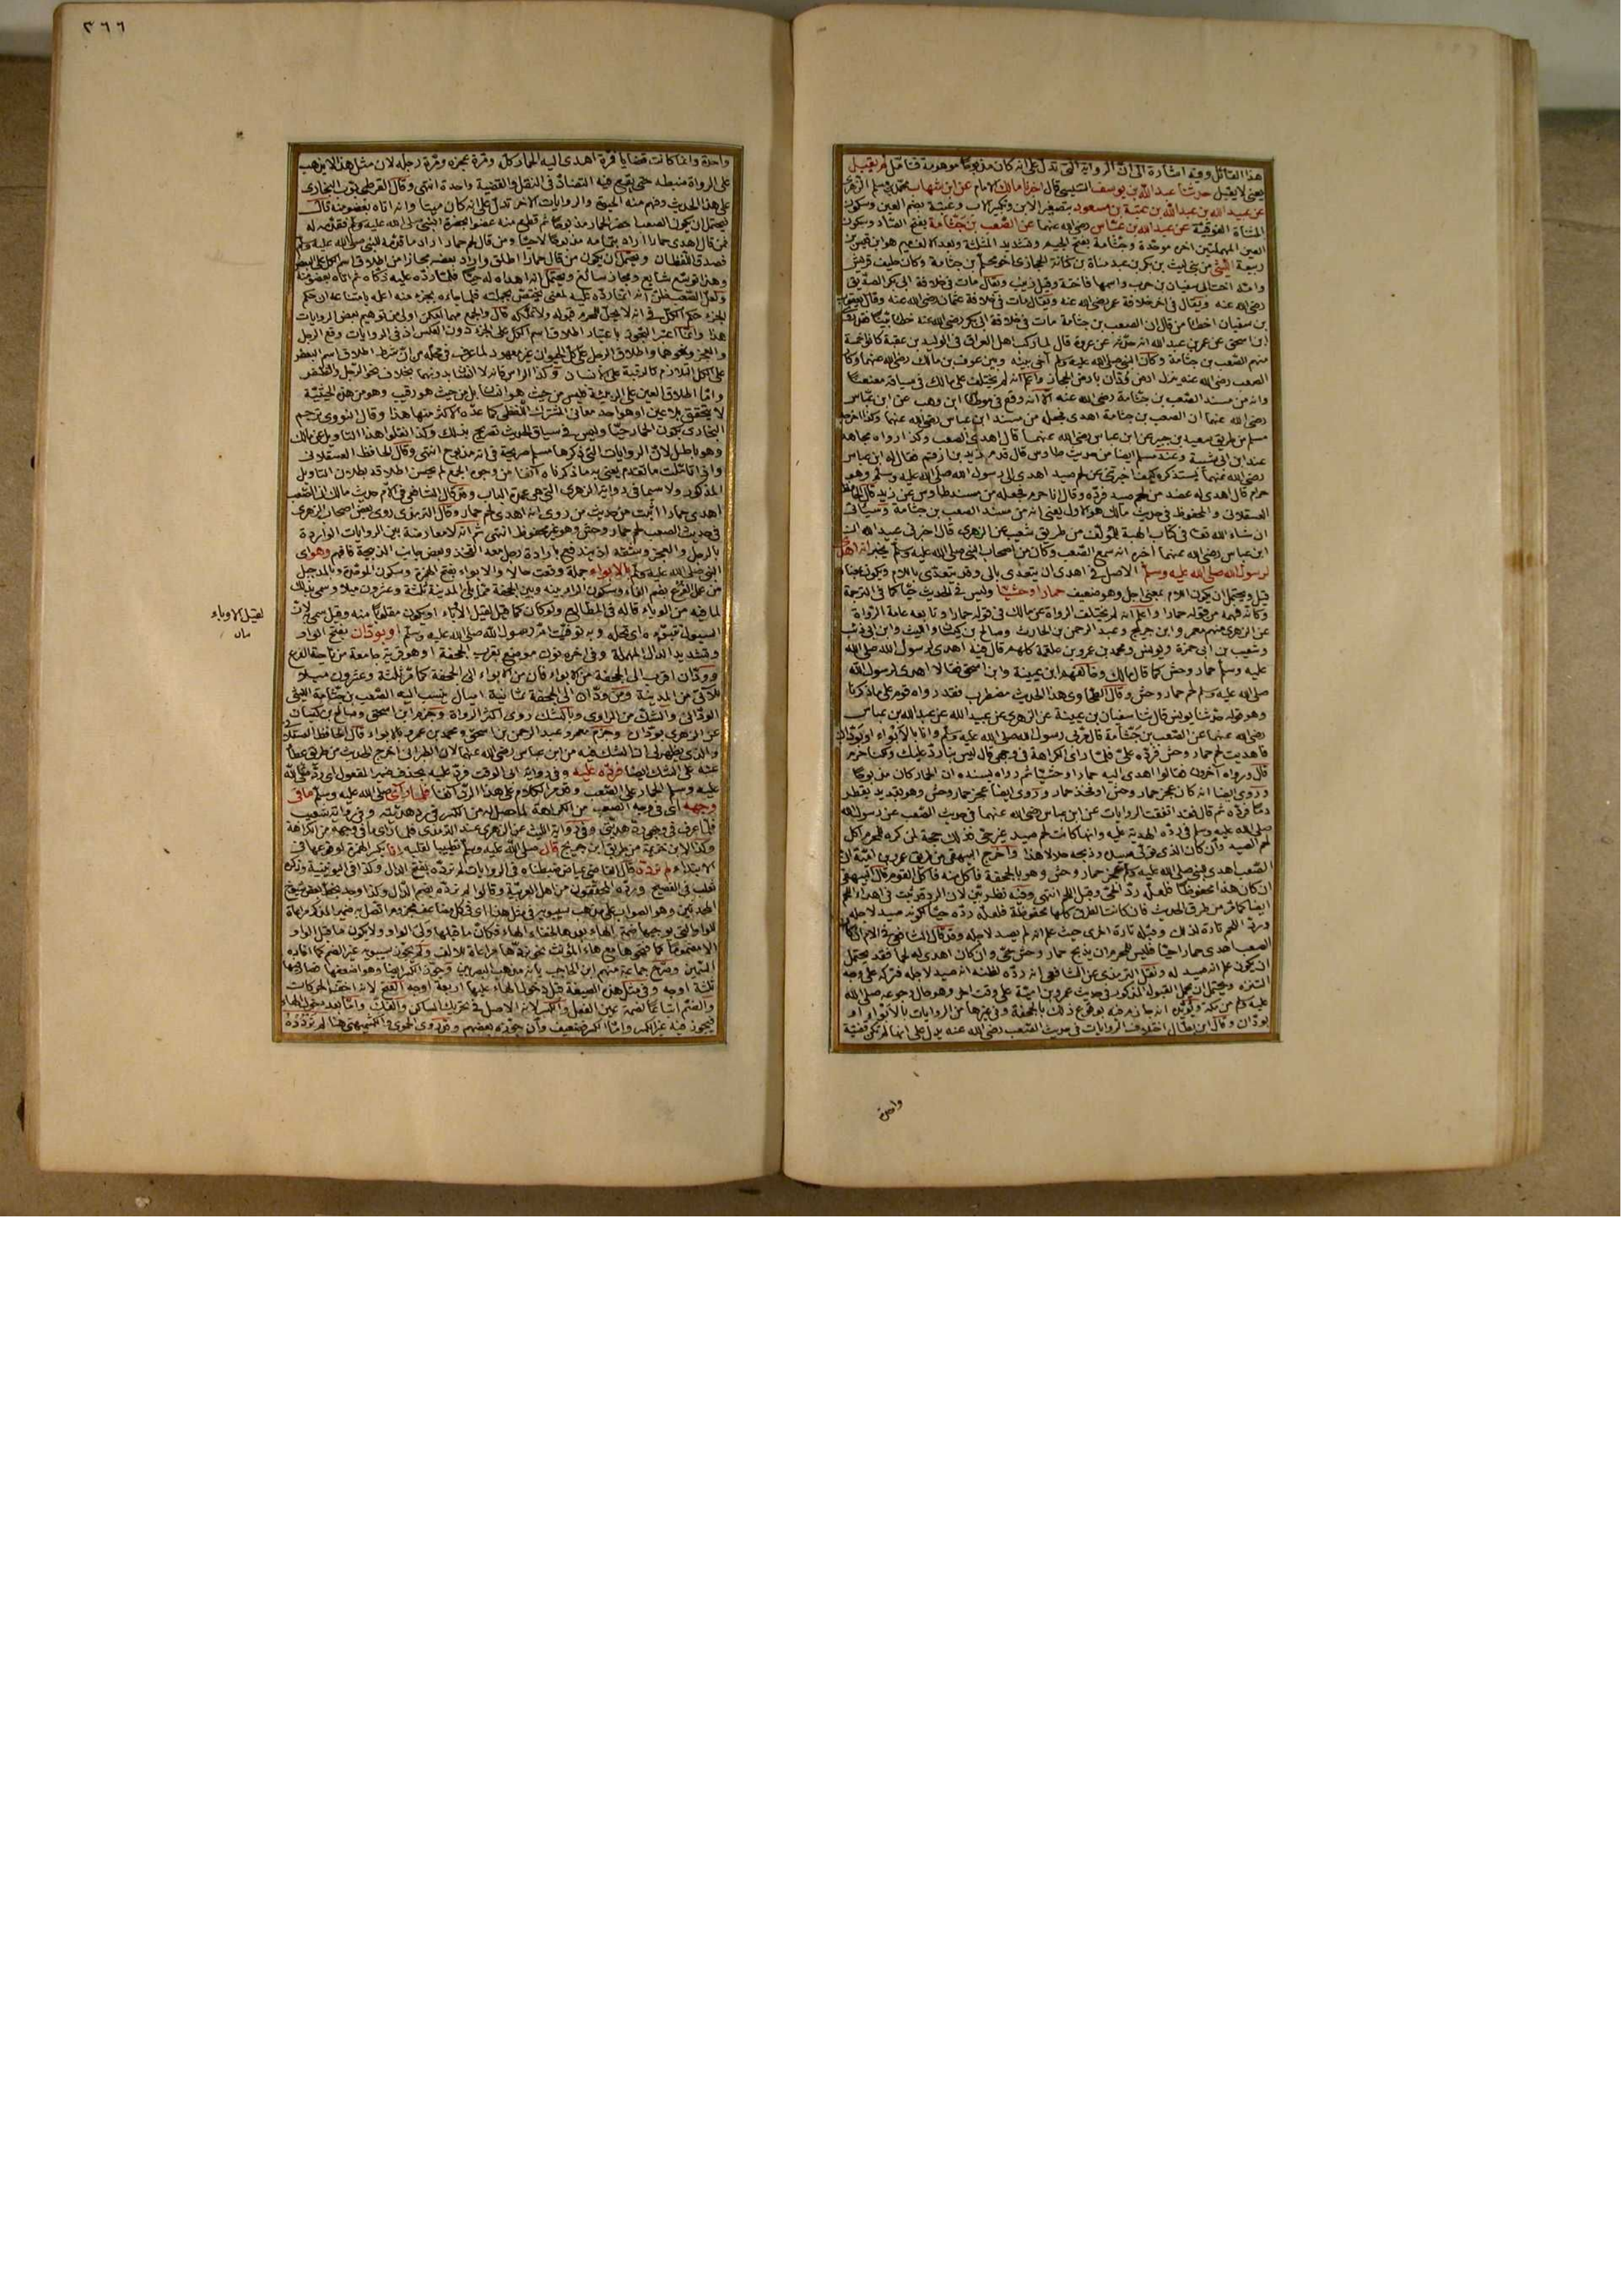 هذا القائل وفيه اشارة الى ان الرواية التي تدل على انه كان مذبوحا موهومة فتأمل لم يقبل
يعني لا يقبل حدثنا عبد الله بن يوسف التنيسي قال اخبرنا مالك الامام عن ابن شهاب محمد بن مسلم الزهري
عن عبيد الله بن عبد الله بن عتبة بن مسعود بتصغير الابن وتكبير الاب وعتبة بضم العين وسكون
المثناة الفوقية عن عبد الله بن عباس رضي الله عنهما عن الصعب بن جثامة بفتح الصاد وسكون
العين المهملتين اخره موحدة وجثامة بفتح الجيم وتشديد المثلثة وبعد الالف ميم هو ابن قيس بن
ربيعة الليثي من بني ليث بن بكر بن عبد مناة بن كنانة الحجازي اخو محلم بن جثامة وكان حليف قريش
وامه اخت ابي سفيان بن حرب واسمها فاختة وقيل زينب ويقال مات في خلافة ابي بكر الصديق
رضي الله عنه ويقال في اخر خلافة عمر رضي الله عنه ويقال مات في خلافة عثمان رضي الله عنه وقال يعقوب
بن سفيان اخطأ من قال ان الصعب بن جثامة مات في خلافة ابي بكر رضي الله عنه خطأ بينا فقد روى
ابن اسحق عن عمر بن عبد الله انه حدثه عن عروة قال لما ركب اهل العراق في الوليد بن عقبة كانوا خمسة
منهم الصعب بن جثامة وكان النبي صلى الله عليه وسلم آخى بينه وبين عوف بن مالك رضي الله عنهما وكان
الصعب رضي الله عنه ينزل ارض ودان بارض الحجاز واعلم انه لم يختلف على مالك في سياقه معنعنا
وانه من مسند الصعب بن جثامة رضي الله عنه الا انه وقع في موطأ ابن وهب عن ابن عباس
رضي الله عنهما ان الصعب بن جثامة اهدى فجعل من مسند ابن عباس رضي الله عنهما وكذا اخرجه
مسلم من طريق سعيد بن جبير عن ابن عباس رضي الله عنهما قال اهدى الصعب وكذا رواه مجاهد
عند ابن ابي شيبة وعند مسلم ايضا من حديث طاوس قال قدم زيد بن ارقم فقال له ابن عباس
رضي الله عنهما يستذكره كيف اخبرتني عن لحم صيد اهدى الى رسول الله صلى الله عليه وسلم وهو
حرام قال اهدى له عضد من لحم صيد فرده وقال انا حرم فجعله من مسند طاوس عن زيد قال الحافظ
العسقلاني والمحفوظ في حديث مالك هو الاول يعني انه من مسند الصعب بن جثامة وسيأتي
ان شاء الله تعالى في كتاب الهبة للمؤلف من طريق شعيب عن الزهري قال اخبرني عبيد الله ان
ابن عباس رضي الله عنهما اخبره انه سمع الصعب وكان من اصحاب النبي صلى الله عليه وسلم يخبر انه اهدى
لرسول الله صلى الله عليه وسلم الاصل في اهدى ان يتعدى بالى وقد يتعدى باللام ويكون بمعناه
قيل ويحتمل ان يكون اللام بمعنى اجل وهو ضعيف حمارا وحشيا وليس في الحديث حيا كما في الترجمة
وكأنه فهمه من قوله حمارا واعلم انه لم يختلف الرواة عن مالك في قوله حمارا وتابعه عامة الرواة
عن الزهري منهم معمر وابن جريج وعبد الرحمن بن الحارث وصالح بن كيسان والليث وابن ابي ذئب
وشعيب بن ابي حمزة ويونس ومحمد بن عمرو بن علقمة كلهم قال فيه اهدى لرسول الله صلى الله
عليه وسلم حمار وحش كما قال مالك وخالفهم ابن عيينة وابن اسحق فقالا اهدى لرسول الله
صلى الله عليه وسلم لحم حمار وحش وقال الطحاوي هذا الحديث مضطرب فقد رواه قوم على ما ذكرنا
وهو قوله حدثنا يونس قال ثنا سفيان بن عيينة عن الزهري عن عبيد الله عن عبد الله بن عباس
رضي الله عنهما عن الصعب بن جثامة قال مر بي رسول الله صلى الله عليه وسلم وانا بالابواء او بودان
فاهديت لحم حمار وحش فرده علي فلما رأى الكراهة في وجهي قال ليس بنا رد عليك ولكنا حرم
قال ورواه آخرون فقالوا اهدى اليه حمارا وحشيا ثم رواه بسنده ان الحمار كان مذبوحا
وروى ايضا انه كان عجز حمار وحش او فخذ حمار وروى ايضا عجز حمار وحش وهو بقديد يقطر
دما فرده ثم قال فقد اتفقت الروايات عن ابن عباس رضي الله عنهما في حديث الصعب عن رسول الله
صلى الله عليه وسلم في رده الهدية عليه وانها كانت لحم صيد غير حي فذلك حجة لمن كره للمحرم اكل
لحم الصيد وان كان الذي تولى صيده وذبحه حلالا هذا واخرج البيهقي من طريق عمرو بن امية ان
الصعب اهدى للنبي صلى الله عليه وسلم عجز حمار وحش وهو بالجحفة فاكل منه فاكل القوم قال البيهقي
ان كان هذا محفوظا فلعله رد الحي وقبل اللحم انتهى وفيه نظر بين لان الرد قد ثبت في اهداء اللحم
ايضا كما مر من طرق الحديث فان كانت الطرق كلها محفوظة فلعله رده حيا لكونه صيد لاجله
ورد اللحم تارة لذلك وقبله تارة اخرى حيث علم انه لم يصد لاجله وقد قال الشافعي في الام ان كان
الصعب اهدى حمارا حيا فليس للمحرم ان يذبح حمار وحش حي وان كان اهدى له لحما فقد يحتمل
ان يكون علم انه صيد له ونقل الترمذي عن الشافعي انه رده لظنه انه صيد لاجله فتركه على وجه
التنزه ويحتمل ان يحمل القبول المذكور في حديث عمرو بن امية على وقت اخر وهو حال رجوعه صلى الله
عليه وسلم من مكة ويؤيده انه جازم فيه بوقوع ذلك بالجحفة وفي غيرها من الروايات بالابواء او
بودان وقال ابن بطال اختلاف الروايات في حديث الصعب رضي الله عنه يدل على انها لم تكن قضية
واحدة
٣٦٦
واحدة وانما كانت قضايا فمرة اهدى اليه الحمار كله ومرة عجزه ومرة رجله لان مثل هذا لا يذهب
على الرواة ضبطه حتى يقع فيه التضاد في النقل والقضية واحدة انتهى وقال القرطبي بوب البخاري
على هذا الحديث وفهم منه الحيوة والروايات الاخر تدل على انه كان ميتا وانه اتاه بعضو منه قال
يحتمل ان يكون الصعب احضر الحمار مذبوحا ثم قطع منه عضوا بحضرة النبي صلى الله عليه وسلم فقدمه له
فمن قال اهدى حمارا اراد بتمامه مذبوحا لا حيا ومن قال لحم حمار اراد ما قدمه للنبي صلى الله عليه وسلم
فصدق اللفظان ويحتمل ان يكون من قال حمارا اطلق واراد بعضه مجازا من اطلاق اسم الكل على البعض
وهذا توسع شايع ومجاز سائغ ويحتمل انه اهداه له حيا فلما رده عليه ذكاه ثم اتاه بعضو منه
ولعل الصعب ظن انه انما رده عليه لمعنى يختص بجملته فلما جاءه بجزء منه اعلمه بامتناعه ان حكم
الجزء حكم الكل في انه لا يحل للمحرم قبوله ولا تملكه قال والجمع مهما امكن اولى من توهيم بعض الروايات
هذا وانما اعتبر التجوز باعتبار اطلاق اسم الكل على الجزء دون العكس اذ في الروايات وقع الرجل
والعجز ونحوها واطلاق الرجل على كل الحيوان غير معهود لما عرف في محله من ان شرط اطلاق اسم البعض
على الكل التلازم كالرقبة على الانسان وكذا الراس فانه لا انسان بدونهما بخلاف نحو الرجل والظفر
واما اطلاق العين على الربيئة فليس من حيث هو انسان بل من حيث هو رقيب وهو من هذه الحيثية
لا يتحقق بلا عين او هو احد معاني المشترك اللفظي كما عده الاكثر منها هذا وقال النووي ترجم
البخاري بكون الحمار حيا وليس في سياق الحديث تصريح بذلك وكذا نقلوا هذا التاويل عن مالك
وهو باطل لان الروايات التي ذكرها مسلم صريحة في انه مذبوح انتهى وقال الحافظ العسقلاني
واذا تأملت ما تقدم يعني به ما ذكرناه آنفا من وجوه الجمع لم يحسن اطلاقه بطلان التاويل
المذكور ولا سيما في رواية الزهري التي هي عمدة الباب وقد قال الشافعي في الام حديث مالك ان الصعب
اهدى حمارا اثبت من حديث من روى انه اهدى لحم حمار وقال الترمذي روى بعض اصحاب الزهري
في حديث الصعب لحم حمار وحش وهو غير محفوظ انتهى ثم انه لا معارضة بين الروايات الواردة
بالرجل والعجز وشقه اذ يندفع بارادة رجل معه الفخذ وبعض جانب الذبيحة فافهم وهو اى
النبي صلى الله عليه وسلم بالابواء جملة وقعت حالا والابواء بفتح الهمزة وسكون الموحدة وبالمد جبل
من عمل الفرع بضم الفاء وسكون الراء بينه وبين الجحفة مما يلي المدينة ثلثة وعشرون ميلا وسمي بذلك
لما فيه من الوباء قاله في المطالع ولو كان كما قيل لقيل الاوباء او يكون مقلوبا منه وقيل سمي به لان
السيول تتبوءه اي تحله وبه توفيت ام رسول الله صلى الله عليه وسلم او بودان بفتح الواو
وتشديد الدال المهملة وفي اخره نون موضع بقرب الجحفة او هو قرية جامعة من ناحية الفرع
وودان اقرب الى الجحفة من الابواء فان من الابواء الى الجحفة كما مر ثلثة وعشرون ميلا
للآتي من المدينة ومن ودان الى الجحفة ثمانية اميال ينسب اليه الصعب بن جثامة الليثي
الوداني والشك من الراوي وبالشك روى اكثر الرواة وجزم ابن اسحق وصالح بن كيسان
عن الزهري بودان وجزم معمر وعبد الرحمن بن اسحق ومحمد بن عمرو بالابواء قال الحافظ العسقلاني
والذي يظهر لي ان الشك فيه من ابن عباس رضي الله عنهما لان الطبراني اخرج الحديث من طريق عطاء
عنه على الشك ايضا فرده عليه وفي رواية ابي الوقت فرد عليه بحذف ضمير المفعول اي رد صلى الله
عليه وسلم الحمار على الصعب وقد مر الكلام على هذا الرد آنفا فلما رأى صلى الله عليه وسلم ما في
وجهه اي في وجه الصعب من الكراهة لما حصل له من الكسر في رد هديته وفي رواية شعيب
فلما عرف في وجهي رده هديتي وفي رواية الليث عن الزهري عند الترمذي فلما رأى ما في وجهه من الكراهة
وكذا لابن خزيمة من طريق ابن جريج قال صلى الله عليه وسلم تطييبا لقلبه انا بكسر الهمزة لوقوعها في
الابتداء لم نرده قال القاضي عياض ضبطناه في الروايات لم نرده بفتح الدال وكذا في اليونينية وذكره
ثعلب في الفصيح ورده المحققون من اهل العربية وقالوا لم نرده بضم الدال وكذا وجد بخط بعض شيوخ
المحدثين وهو الصواب على مذهب سيبويه في مثل هذا اي في كل مضاعف مجزوم اتصل به ضمير المذكر مراعاة
للواو التي يوجبها ضمة الهاء بعدها لخفاء الهاء فكأن ما قبلها ولي الواو ولا يكون ما قبل الواو
الا مضموما كما فتحوها مع هاء المؤنث نحو نردها مراعاة للالف ولم يجوز سيبويه غير الضم كما افاده
السمين وصرح جماعة منهم ابن الحاجب بانه مذهب البصريين وجوز الكسر ايضا وهو اضعفها فصار فيها
ثلثة اوجه وفي مثل هذه الصيغة قبل دخول الهاء عليها اربعة اوجه الفتح لانه اخف الحركات
والضم اتباعا لضمة عين الفعل والكسر لانه الاصل في تحريك الساكن والفك واما بعد دخول الهاء
فيجوز فيه غير الكسر واما الكسر فضعيف وان جوزه بعضهم وقد روى الحموي والكشميهني هنا لم نردده
لقيل الاوباء